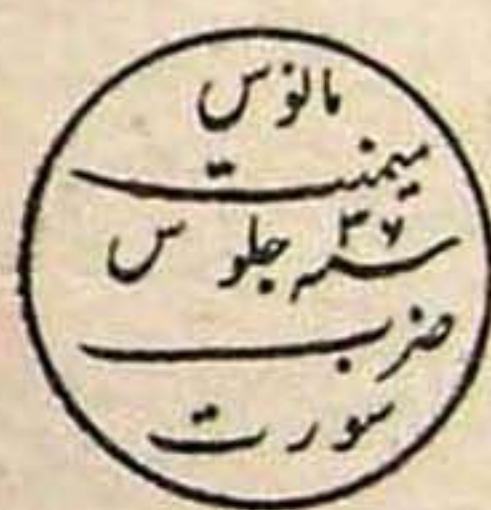 مانوس
میمنت
سنه ۴۶ جلوس
ضرب
سورت